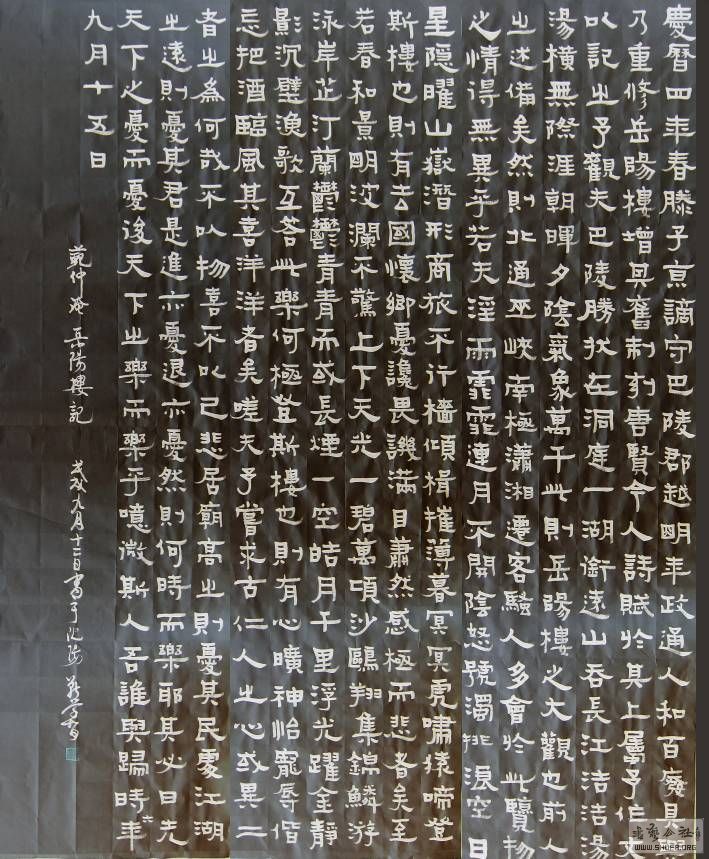 慶曆四年春滕子京謫守巴陵郡越明年政通人和百廢具
乃重修岳陽樓增其舊制刻唐賢今人詩賦於其上屬予作
以記之予觀夫巴陵勝狀在洞庭一湖銜遠山吞長江浩浩湯
湯橫無際涯朝暉夕陰氣象萬千此則岳陽樓之大觀也前人
之述備矣然則北通巫峽南極瀟湘遷客騷人多會於此覽物
之情得無異乎若夫淫雨霏霏連月不開陰怒號濁排浪空日
星隱曜山嶽潛形商旅不行檣傾楫摧薄暮冥冥虎嘯猿啼登
斯樓也則有去國懷鄉憂讒畏譏滿目蕭然感極而悲者矣至
若春和景明波瀾不驚上下天光一碧萬頃沙鷗翔集錦鱗游
泳岸芷汀蘭鬱鬱青青而或長煙一空皓月千里浮光躍金靜
影沉璧漁歌互答此樂何極登斯樓也則有心曠神怡寵辱偕
忘把酒臨風其喜洋洋者矣嗟夫予嘗求古仁人之心或異二
者之為何哉不以物喜不以己悲居廟高之則憂其民處江湖
之遠則憂其君是進亦憂退亦憂然則何時而樂耶其必曰先
天下之憂而憂後天下之樂而樂乎噫微斯人吾誰與歸時六年
九月十五日
范仲淹岳陽樓記
九月十二日書于
WWW.SHUFA.ORG